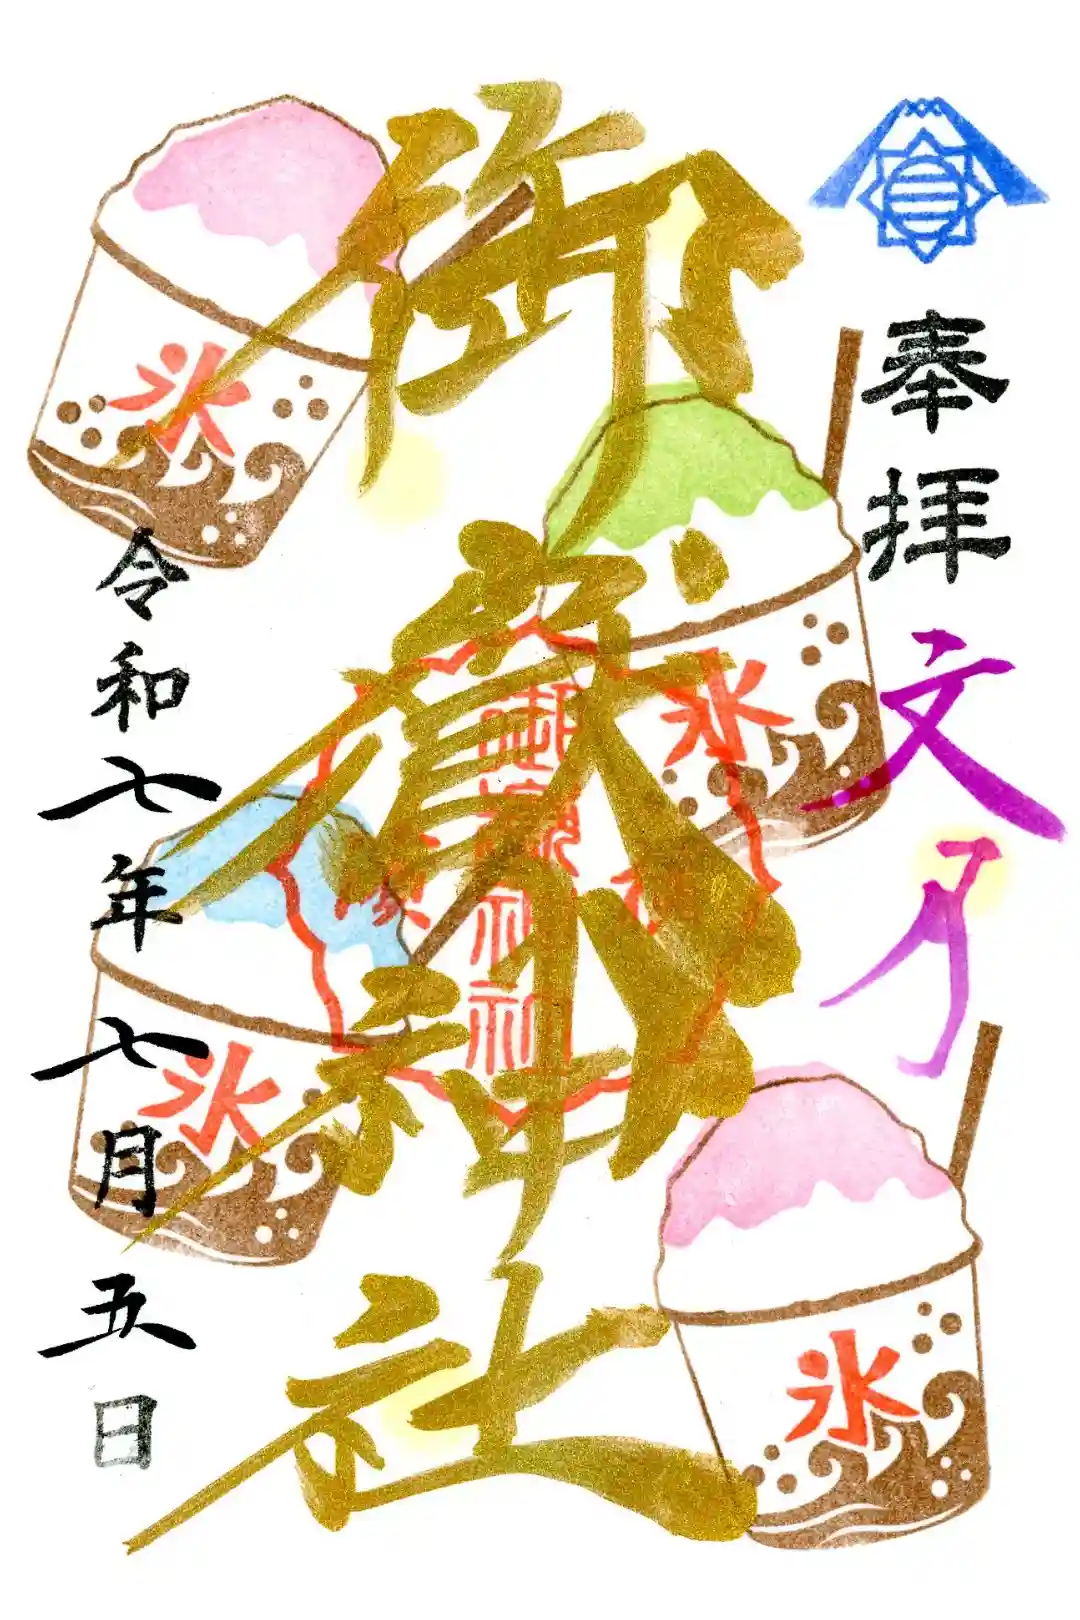 奉拝
文月
御嶽神社
御嶽神社
令和七年七月五日
氷
氷
氷
氷